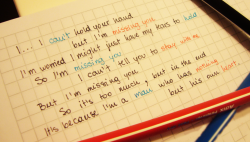 I... I can't hold your hand
but I'm missing you
I'm worried I might just love my tears to hold
So I'm missing you
I can't tell you to stay with me
But I'm missing you, but in the end
So it's too much, a man who has nothing
It's because I'm a man but his own heart